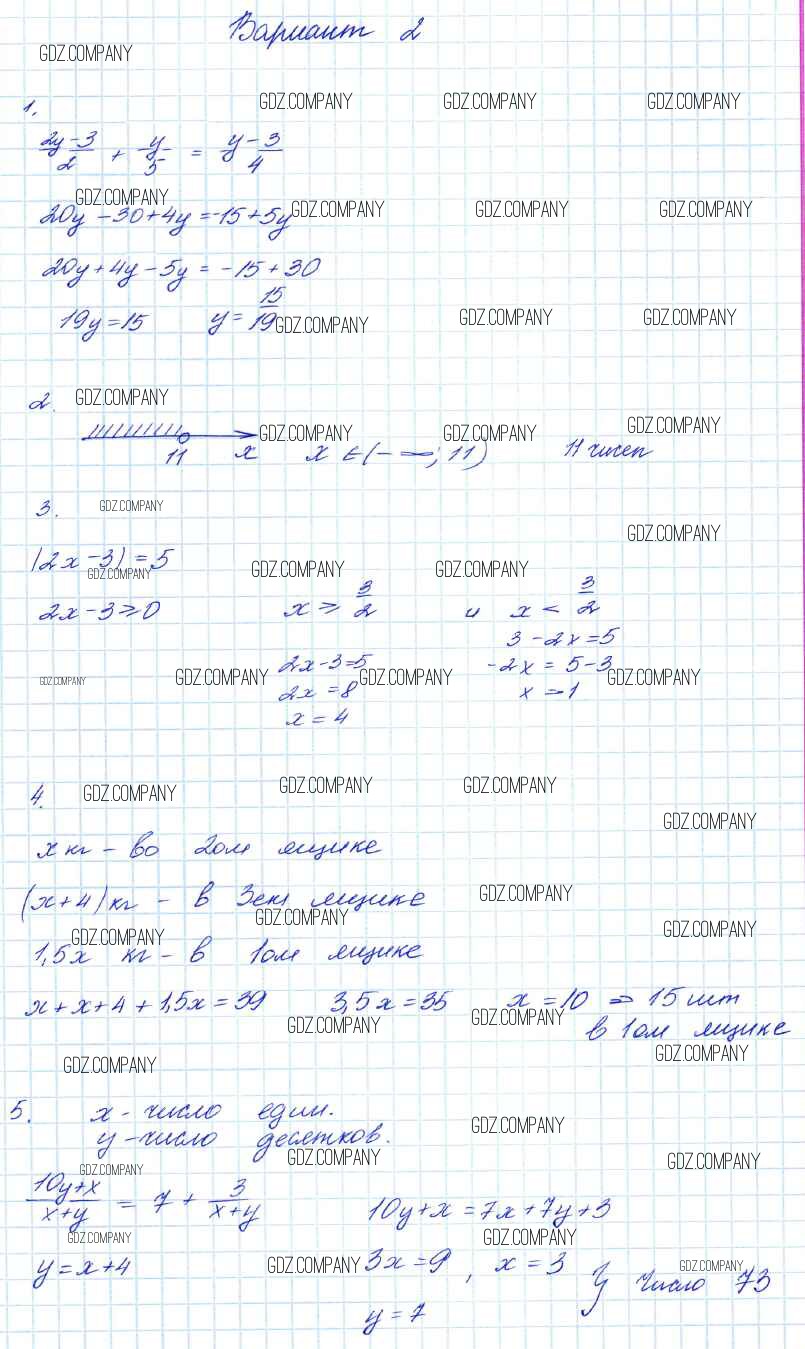 Вариант 2
GDZ.COMPANY
1. GDZ.COMPANY GDZ.COMPANY GDZ.COMPANY
(2y-3)/2 + y/5 = (y-3)/4
GDZ.COMPANY
20y - 30 + 4y = -15 + 5y GDZ.COMPANY GDZ.COMPANY GDZ.COMPANY
20y + 4y - 5y = -15 + 30
19y = 15 y = 15/19 GDZ.COMPANY GDZ.COMPANY GDZ.COMPANY
2. GDZ.COMPANY
GDZ.COMPANY GDZ.COMPANY GDZ.COMPANY
11 x x ∈ (-∞; 11) 11 чисел
3. GDZ.COMPANY
GDZ.COMPANY
|2x - 3| = 5
GDZ.COMPANY GDZ.COMPANY GDZ.COMPANY
2x - 3 ≥ 0 x ≥ 3/2 и x < 3/2
3 - 2x = 5
2x - 3 = 5 -2x = 5 - 3
GDZ.COMPANY GDZ.COMPANY GDZ.COMPANY GDZ.COMPANY
2x = 8 x = -1
x = 4
4. GDZ.COMPANY GDZ.COMPANY GDZ.COMPANY
GDZ.COMPANY
x кг - во 2ом ящике
(x+4) кг - в 3ем ящике GDZ.COMPANY
GDZ.COMPANY GDZ.COMPANY GDZ.COMPANY
1,5x кг - в 1ом ящике
x + x + 4 + 1,5x = 39 3,5x = 35 x = 10 ⇒ 15 шт
GDZ.COMPANY GDZ.COMPANY
в 1ом ящике
GDZ.COMPANY GDZ.COMPANY
5. x - число един.
GDZ.COMPANY
y - число десятков.
GDZ.COMPANY GDZ.COMPANY GDZ.COMPANY
(10y+x)/(x+y) = 7 + 3/(x+y) 10y + x = 7x + 7y + 3
GDZ.COMPANY GDZ.COMPANY
y = x + 4 GDZ.COMPANY 3x = 9, x = 3 } GDZ.COMPANY
число 73
y = 7